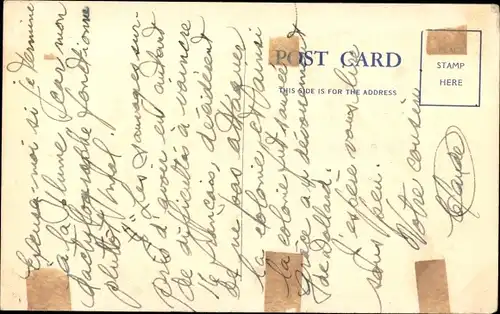 POST CARD
THIS SIDE IS FOR THE ADDRESS
PLACE
STAMP
HERE
Excusez-moi si je termine
à la plume, car mon
dactylographe fonctionne
plutôt mal.
"Les sauvages sur-
pris d'avoir eu autant
de difficultés à vaincre
16 français, décidèrent
de ne pas attaquer
la colonie et ainsi
la colonie fut sauvée
grâce au dévouement
de Dollard.
J'espère vous lire
sous peu.
Votre cousin
Claude